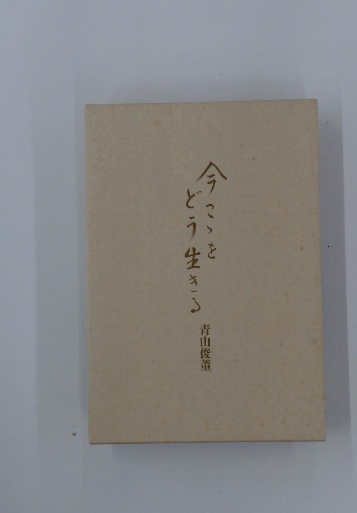 今こゝを
どう生きる
青山俊董